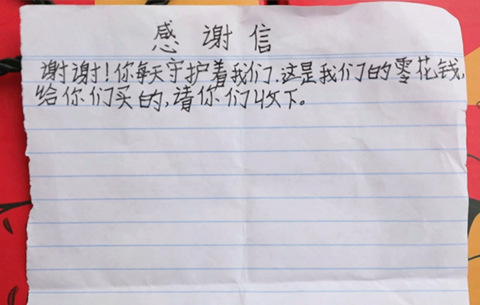 感谢信
谢谢!你每天守护着我们.这是我们的零花钱,
给你们买的,请你们收下。